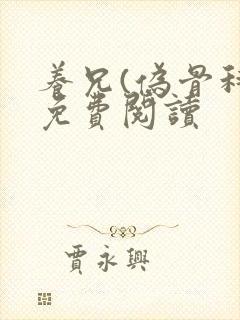 養兄(偽骨科
免費閱讀
賈永興